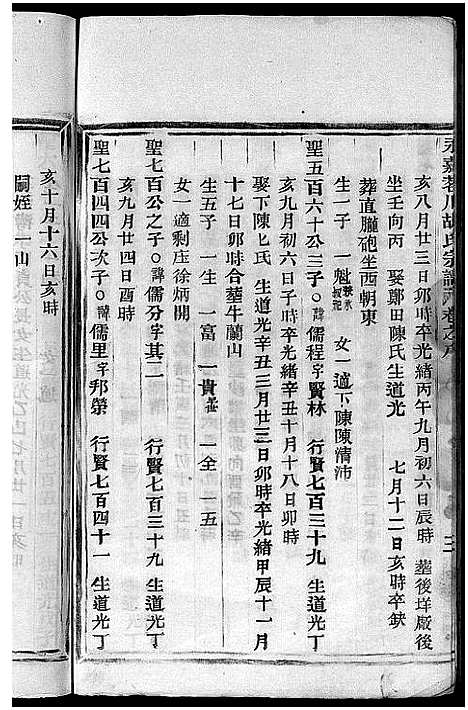 永嘉蓉川胡氏宗譜
亥八月廿三日卯時卒光緒丙午九月初六日辰時 塟後垟廠後
坐壬向丙 娶鄭田陳氏生道光 七月十二日亥時卒缺
葬直朧砲坐西朝東
生一子 一魁 女一適下陳陳清沛
聖五百六十公三子○諱儒程字賢林 行賢七百三十九 生道光丁
亥九月初六日子時卒光緒辛丑十月十八日卯時
娶下陳乜氏 生道光辛丑三月廿三日卯時卒光緒甲辰十一月
十七日卯時合塟牛蘭山
生五子 一生 一富 一貴 一全 一五
女一適剩庄徐炳開
聖七百公之子○諱儒分字其二 行賢七百三十九 生道光丁
亥九月廿四日酉時
聖七百四四公次子○諱儒里字邦榮 行賢七百四十一 生道光丁
亥十月十六日亥時
嗣姪 一山